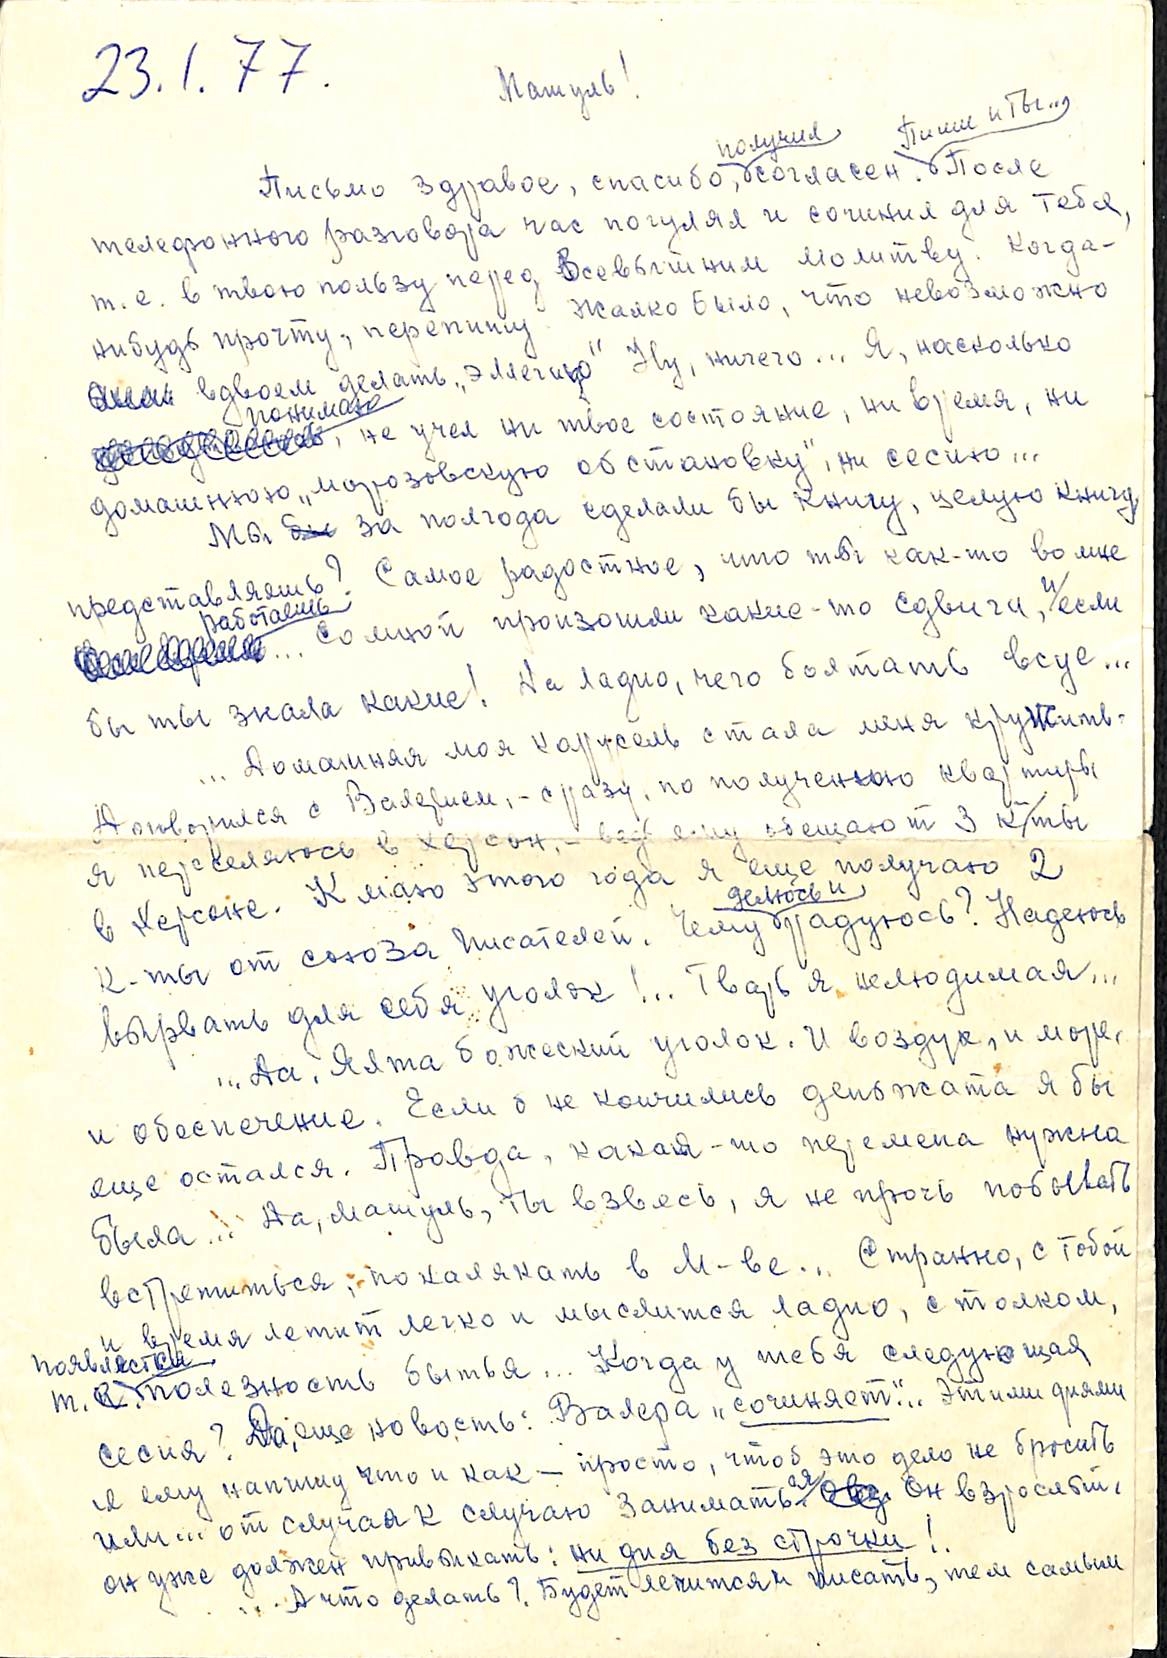 23.1.77.
Машуль!
получил Пиши и ты...
Письмо здравое, спасибо, согласен. После
телефонного разговора час погулял и сочинил для тебя,
т.е. в твою пользу перед Всевышним молитву. Когда-
нибудь прочту, перепишу. Жалко было, что невозможно
вдвоем делать „эллегию" Ну, ничего... Я, насколько
понимаю
, не учел ни твое состояние, ни время, ни
домашнюю „морозовскую обстановку", ни сесию...
Мы за полгода сделали бы книгу, целую книгу
представляешь? Самое радостное, что ты как-то во мне
работаешь.
... со мной произошли какие-то сдвиги, и если
бы ты знала какие! Но ладно, чего болтать всуе...
... Домашняя моя карусель стала меня кружить.
Договорился с Валерием, - сразу, по получению квартиры
я переселяюсь в Херсон, - ведь ему обещают 3 к/ты
в Херсоне. К маю этого года я еще получаю 2
делюсь и
к-ты от союза писателей. Чему радуюсь? Надеюсь
вырвать для себя уголок!... Тварь я нелюдимая...
... Да, Ялта божеский уголок. И воздух, и море,
и обеспечение. Если б не кончились деньжата я бы
еще остался. Правда, какая-то перемена нужна
была... Да, Машуль, ты взвесь, я не прочь побывать
встретиться, покалякать в М-ве... Странно, с тобой
и время летит легко и мыслится ладно, с толком,
появляется
т.е. полезность бытья... Когда у тебя следующая
сесия? Да, еще новость: Валера „сочиняет"... Этими днями
я ему напишу что и как – просто, чтоб это дело не бросить
или... от случая к случаю заниматься. Он взрослый,
он уже должен привыкать: ни дня без строчки!
... А что делать? Будет писать, тем самым